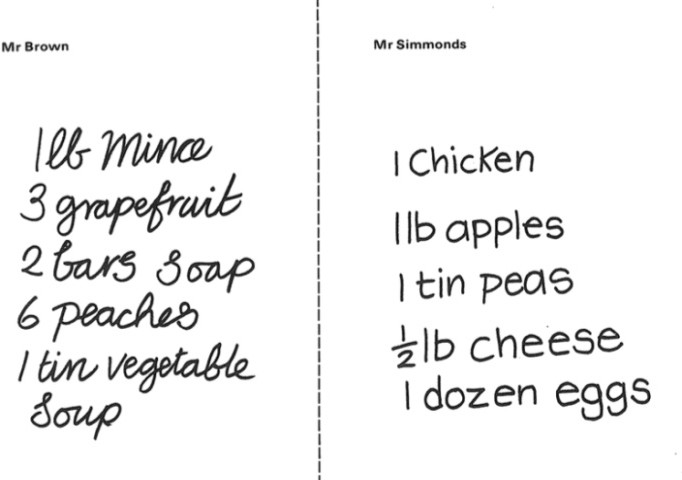 Mr Brown
1lb Mince
3 grapefruit
2 bars soap
6 peaches
1 tin vegetable
soup
Mr Simmonds
1 Chicken
1lb apples
1 tin peas
½lb cheese
1 dozen eggs